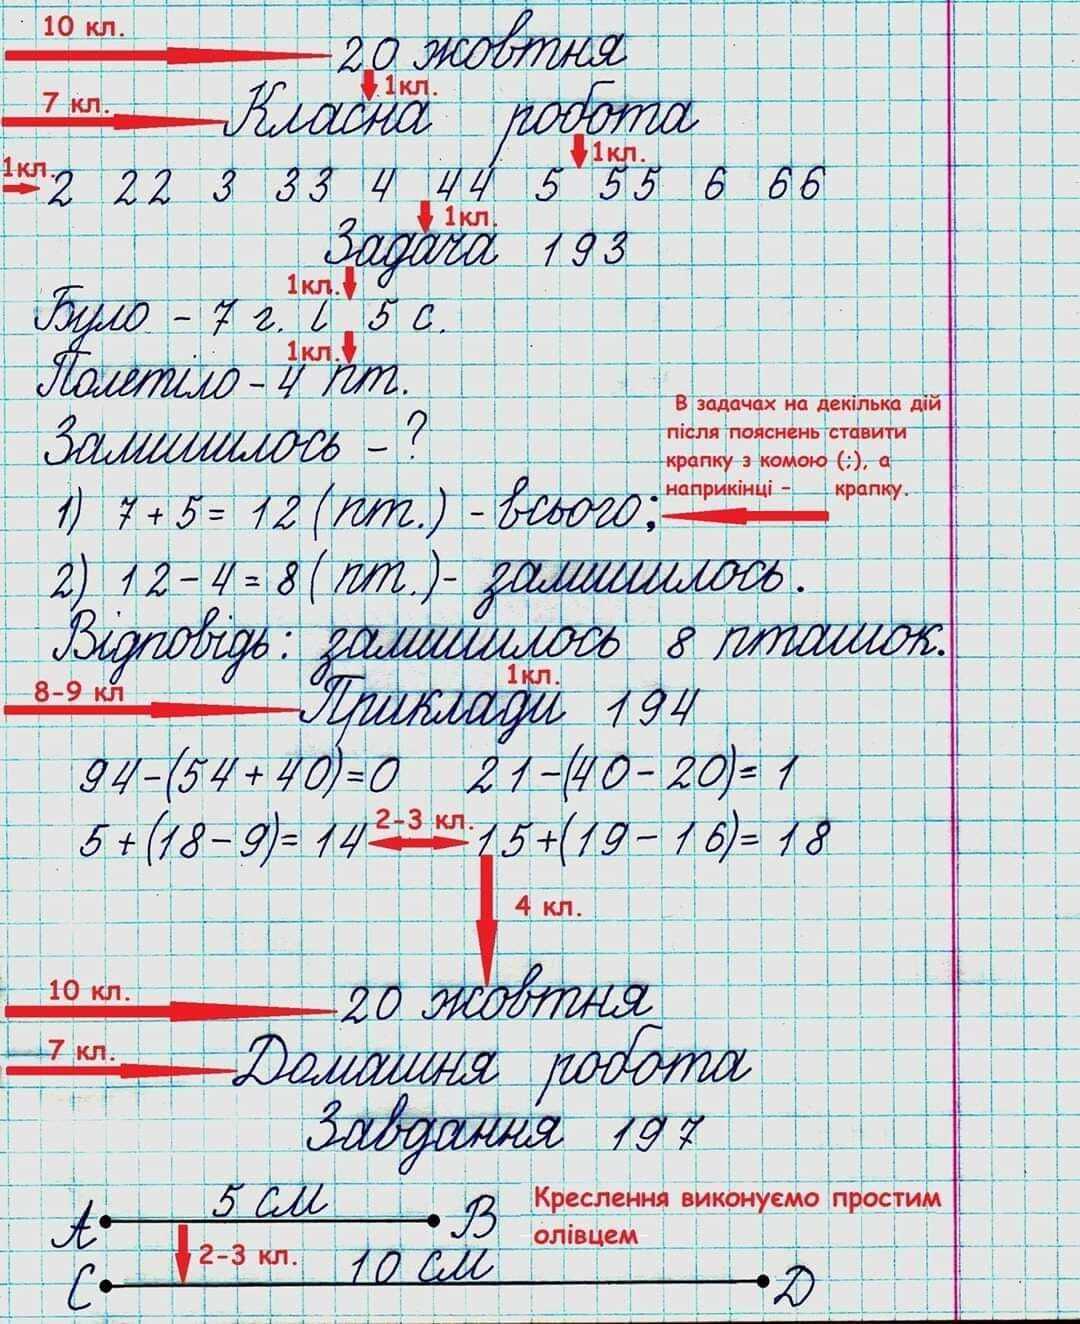 10 кл.
20 жовтня
1кл.
7 кл.
Класна робота
1кл.
1кл.
2 22 3 33 4 44 5 55 6 66
1кл.
Задача 193
1кл.
Було - 7 г. і 5 с.
1кл.
Полетіло - 4 пт.
Залишилось - ?
В задачах на декілька дій
після пояснень ставити
крапку з комою (;), а
наприкінці - крапку.
1) 7 + 5 = 12 (пт.) - всього;
2) 12 - 4 = 8 (пт.) - залишилось.
Відповідь: залишилось 8 пташок.
1кл.
8-9 кл
Приклади 194
94-(54+40)=0 21-(40-20)=1
2-3 кл.
5+(18-9)=14 15+(19-16)=18
4 кл.
10 кл.
20 жовтня
7 кл.
Домашня робота
Завдання 197
5 см
A B
Креслення виконуємо простим
олівцем
2-3 кл.
10 см
C D